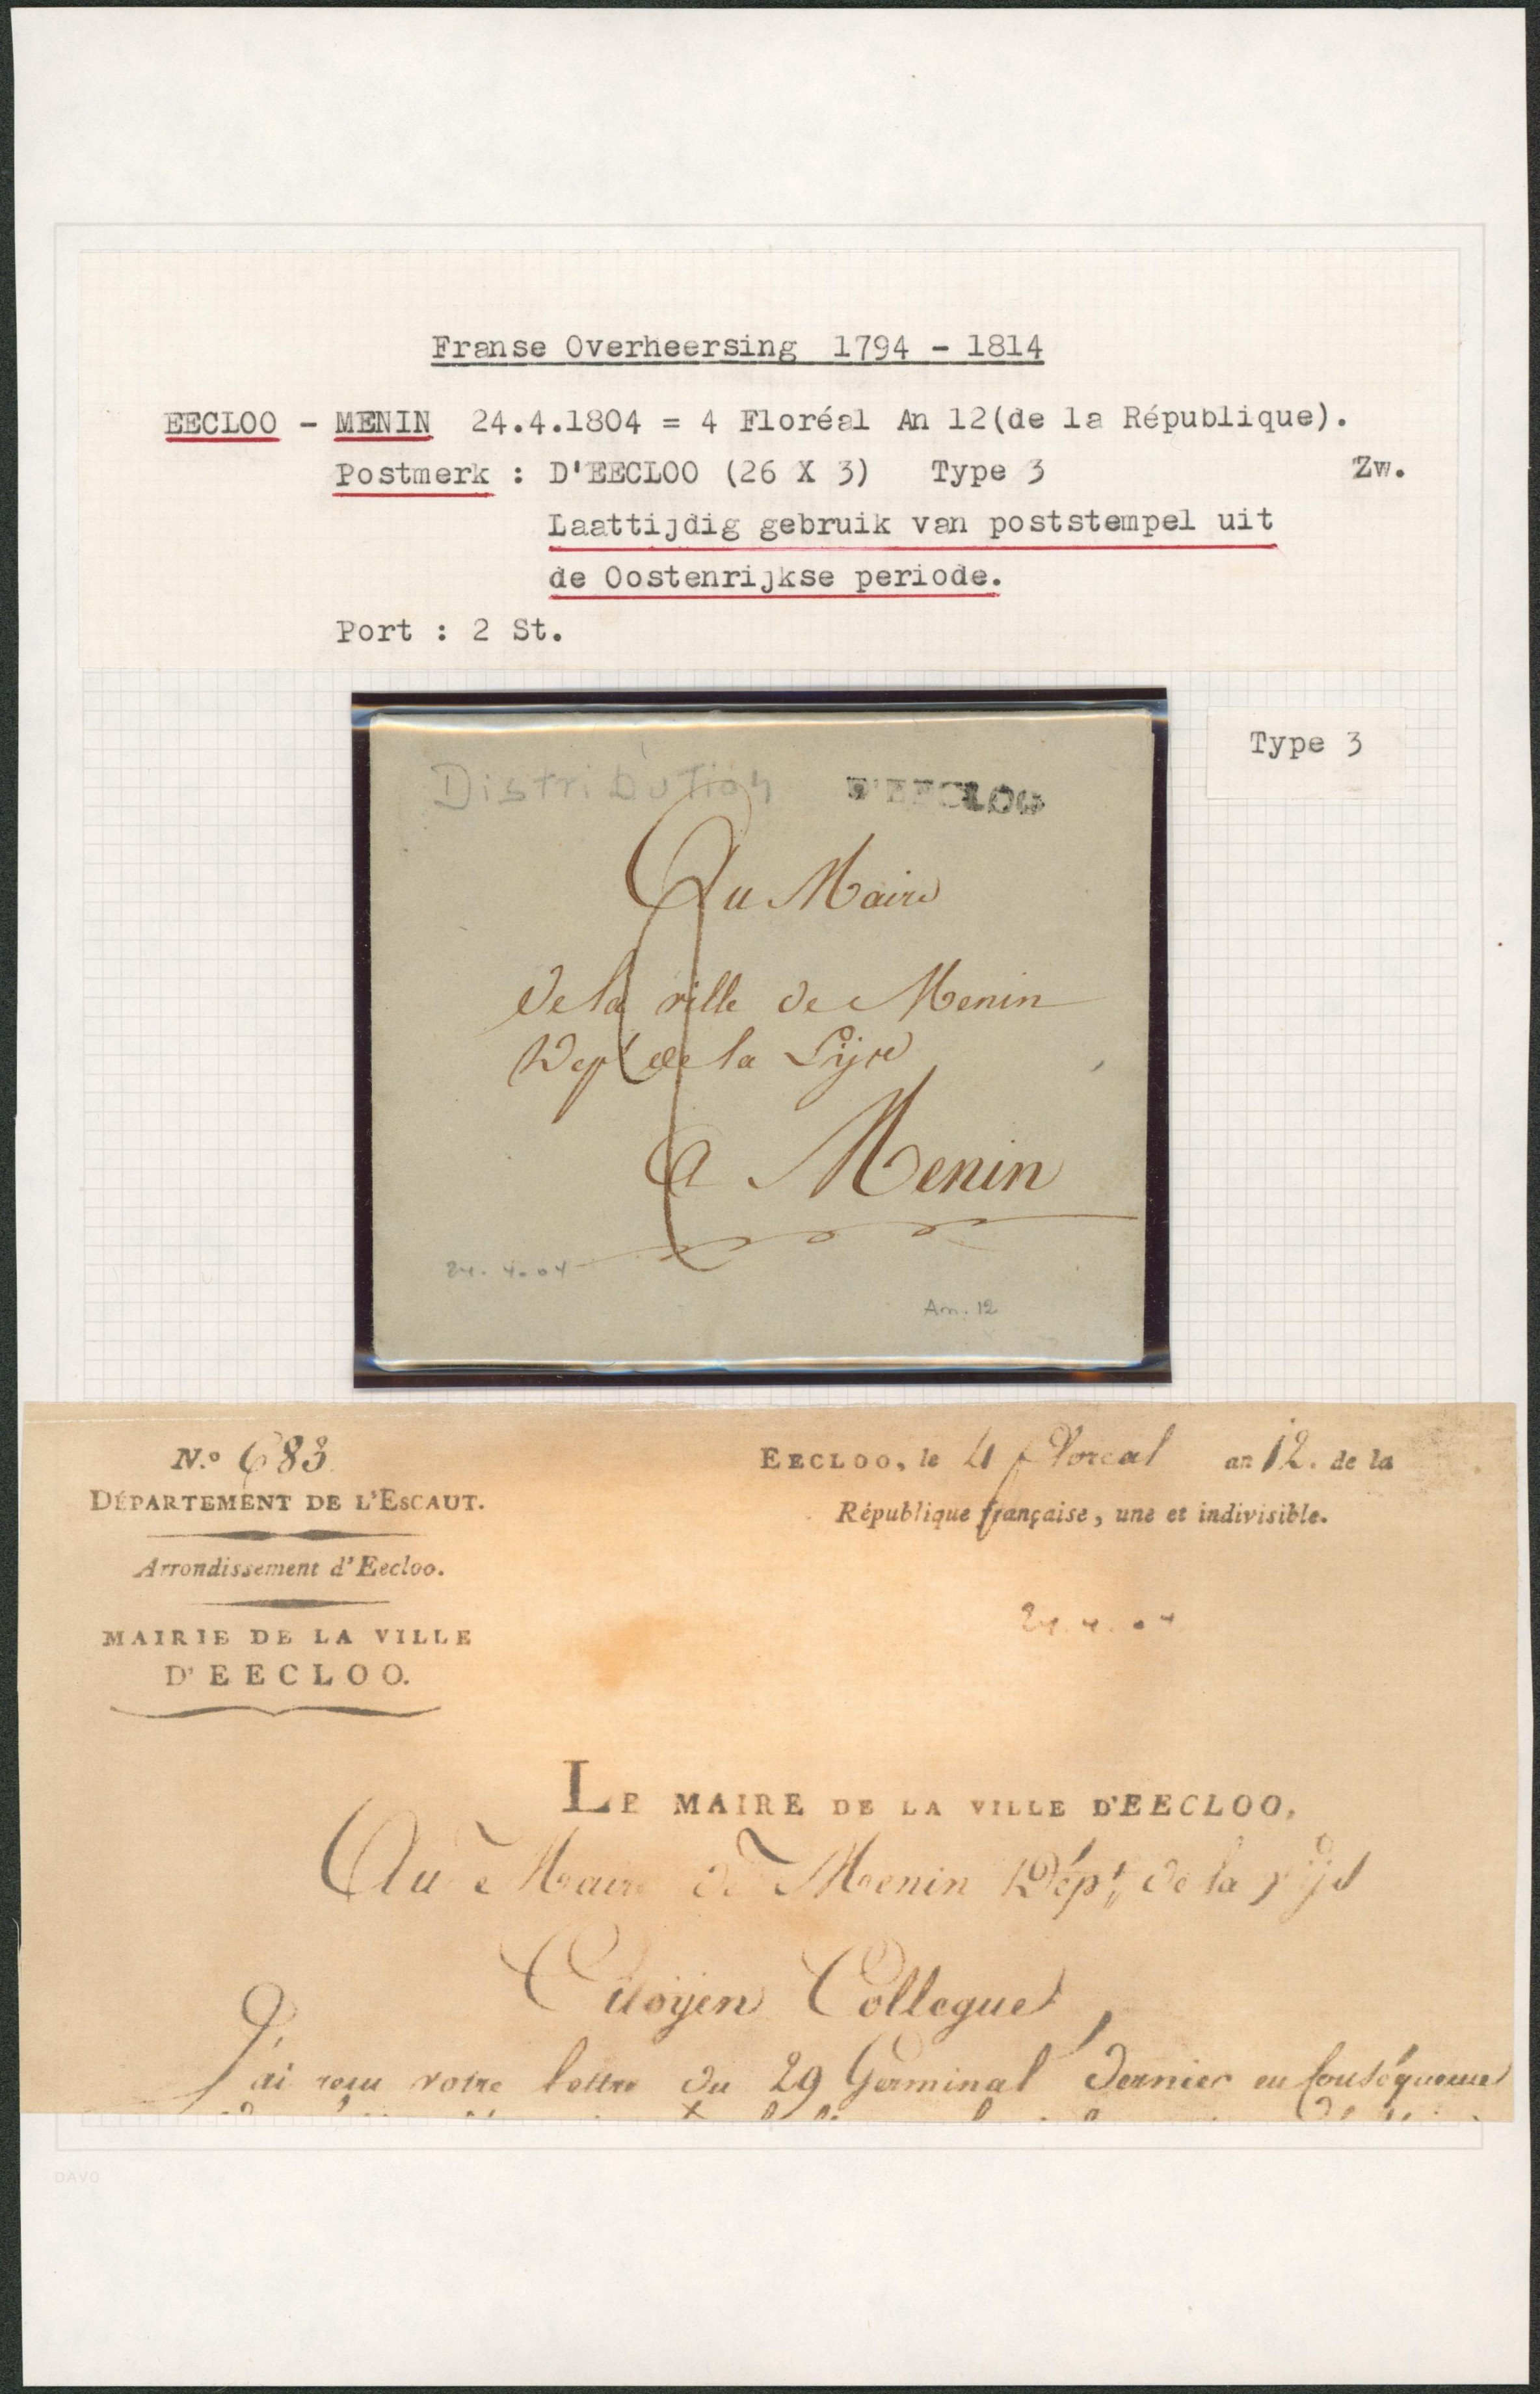 Franse Overheersing 1794 - 1814
EECLOO - MENIN 24.4.1804 = 4 Floréal An 12(de la République).
Postmerk : D'EECLOO (26 X 3) Type 3 Zw.
Laattijdig gebruik van poststempel uit
de Oostenrijkse periode.
Port : 2 St.
Type 3
Distribution D'EECLOO
Au Maire
de la ville de Menin
Dept de la Lijse
a Menin
24.4.04
An. 12
N.o 683
DÉPARTEMENT DE L'ESCAUT.
Arrondissement d'Eecloo.
MAIRIE DE LA VILLE
D'EECLOO.
EECLOO, le 4 floreal an 12. de la
République française, une et indivisible.
24.4.04
LE MAIRE DE LA VILLE D'EECLOO,
Au Maire de Menin Dépt de la Lijs
Citoijen Collegue,
J'ai reçu votre lettre du 29 Germinal dernier en conséquence
DAVO